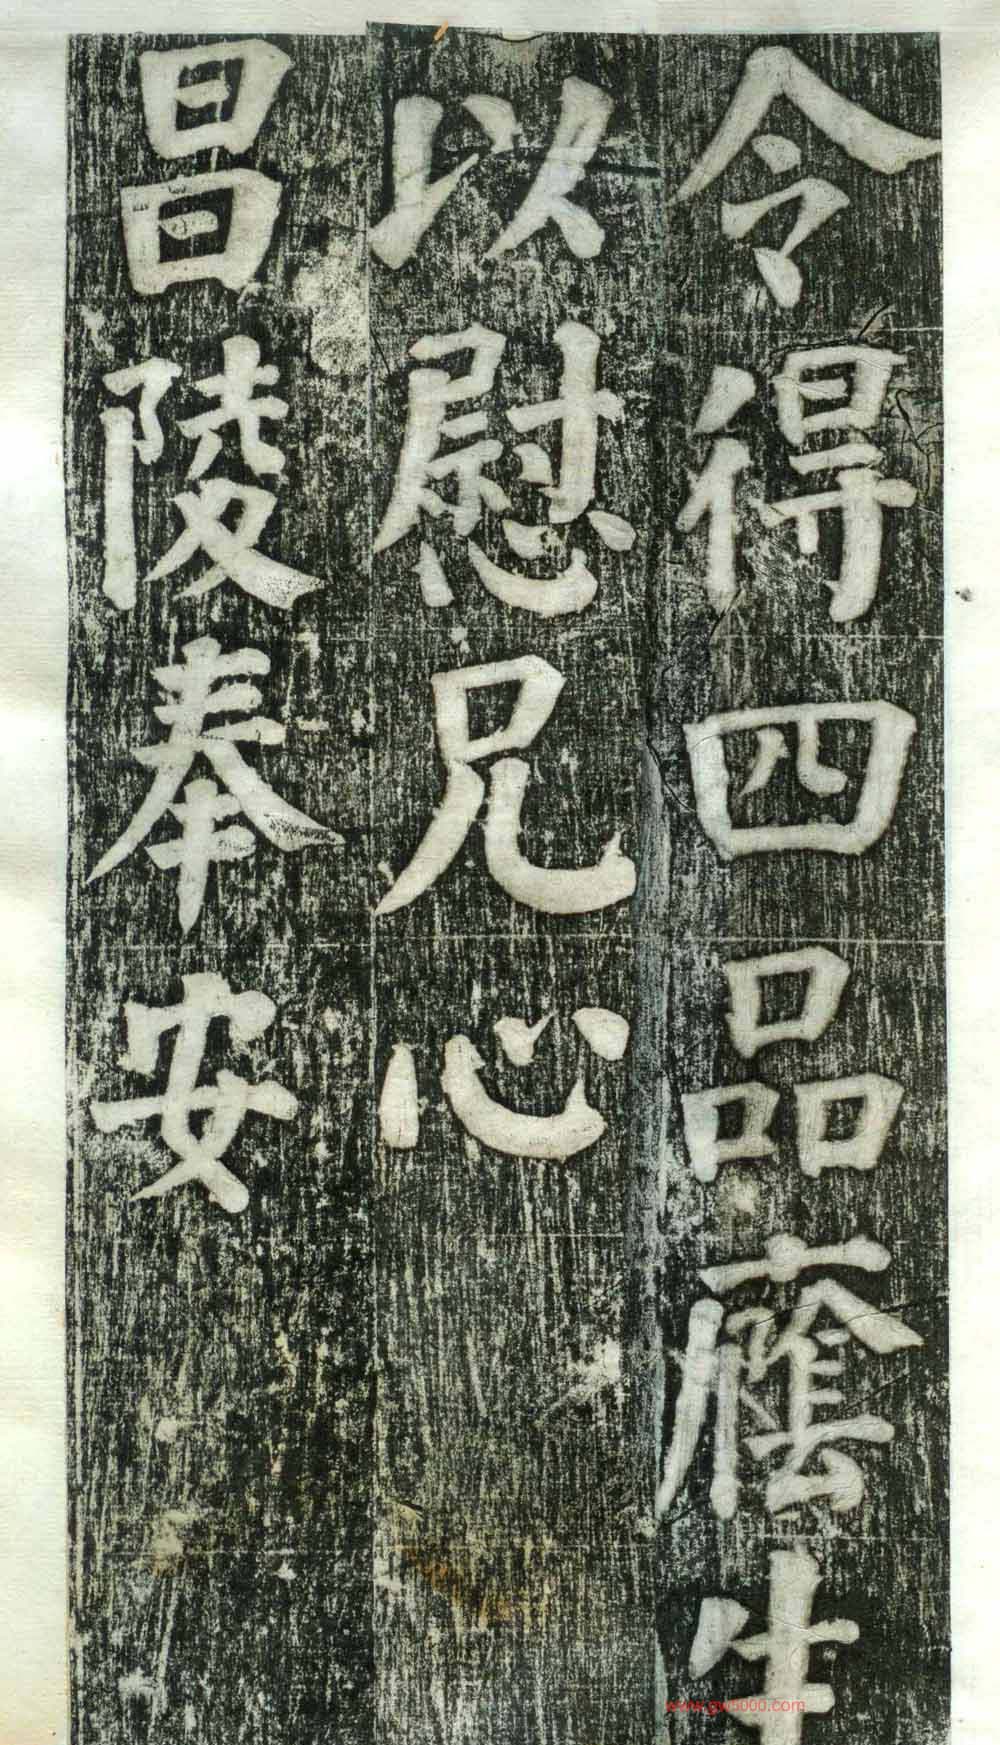 令得四品廕生
以慰兄心
昌陵奉安
www.gw5000.com